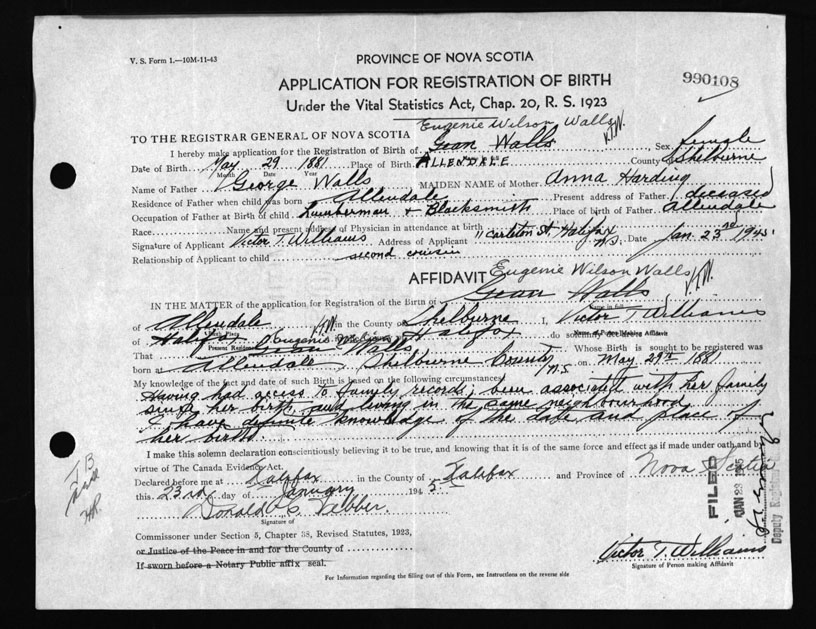 V. S. Form 1.—10M-11-43
PROVINCE OF NOVA SCOTIA
APPLICATION FOR REGISTRATION OF BIRTH
990108
Under the Vital Statistics Act, Chap. 20, R. S. 1923
Eugenie Wilson Walls
TO THE REGISTRAR GENERAL OF NOVA SCOTIA
I hereby make application for the Registration of Birth of Goan Walls Sex female
Date of Birth May 29 1881 Place of Birth ALLENDALE County Shelburne
Month Date Year
Name of Father George Walls MAIDEN NAME of Mother Anna Harding
Residence of Father when child was born Allendale Present address of Father deceased
Occupation of Father at Birth of child Lumberman & Blacksmith Place of Birth of father Allendale
Race Name and present address of Physician in attendance at birth
Signature of Applicant Victor T. Williams Address of Applicant 11 Carleton St. Halifax N.S. Date Jan. 23rd 1945
Relationship of Applicant to child second cousin
AFFIDAVIT Eugenie Wilson Walls
IN THE MATTER of the application for Registration of the Birth of Goan Walls
Name in full
of Allendale in the County of Shelburne I, Victor T. Williams
Birth Place Name of Person Making Affidavit
of Halifax do solemnly declare
Present Residence
That Whose Birth is sought to be registered was
born at Allendale, Shelburne County N.S. on May 29th 1881
My knowledge of the fact and date of such Birth is based on the following circumstances
Having had access to family records; been associated with her family
since her birth and living in the same neighbourhood
I have definite knowledge of the date and place of
her birth
I make this solemn declaration conscientiously believing it to be true, and knowing that it is of the same force and effect as if made under oath and by
virtue of The Canada Evidence Act.
Declared before me at Halifax in the County of Halifax and Province of Nova Scotia
this 23rd day of January 1945
Donald S. Webber
Signature of
Commissioner under Section 5, Chapter 38, Revised Statutes, 1923,
or Justice of the Peace in and for the County of
If sworn before a Notary Public affix seal.
FILED
JAN 23 1945
Deputy Registrar
Victor T. Williams
Signature of Person making Affidavit
For Information regarding the filling out of this Form, see Instructions on the reverse side